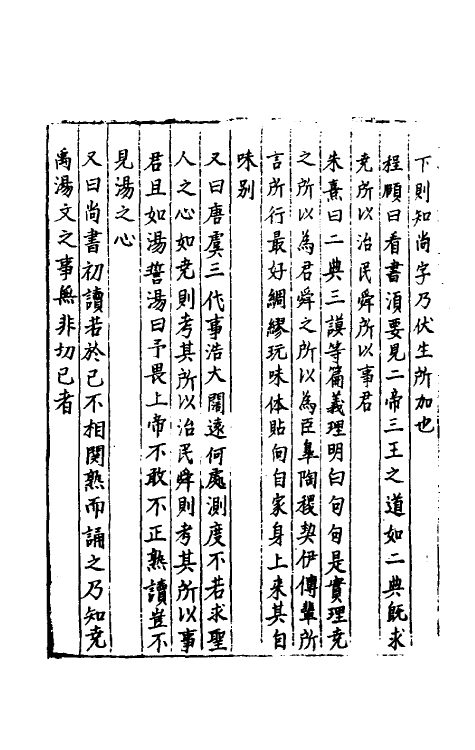 下則知尚字乃伏生所加也
程頤曰看書湏要見二帝三王之道如二典旣求
尭所以治民舜所以事君
朱熹曰二典三謨等篇義理明白句句是實理尭
之所以為君舜之所以為臣臯陶稷契伊傅輩所
言所行最好綢繆玩味体貼向自家身上来其自
味别
又曰唐虞三代事浩大闊遠何處測度不若求聖
人之心如尭則考其所以治民舜則考其所以事
君且如湯誓湯曰予畏上帝不敢不正熟讀豈不
見湯之心
又曰尚書初讀若於己不相関熟而誦之乃知尭
禹湯文之事無非切己者